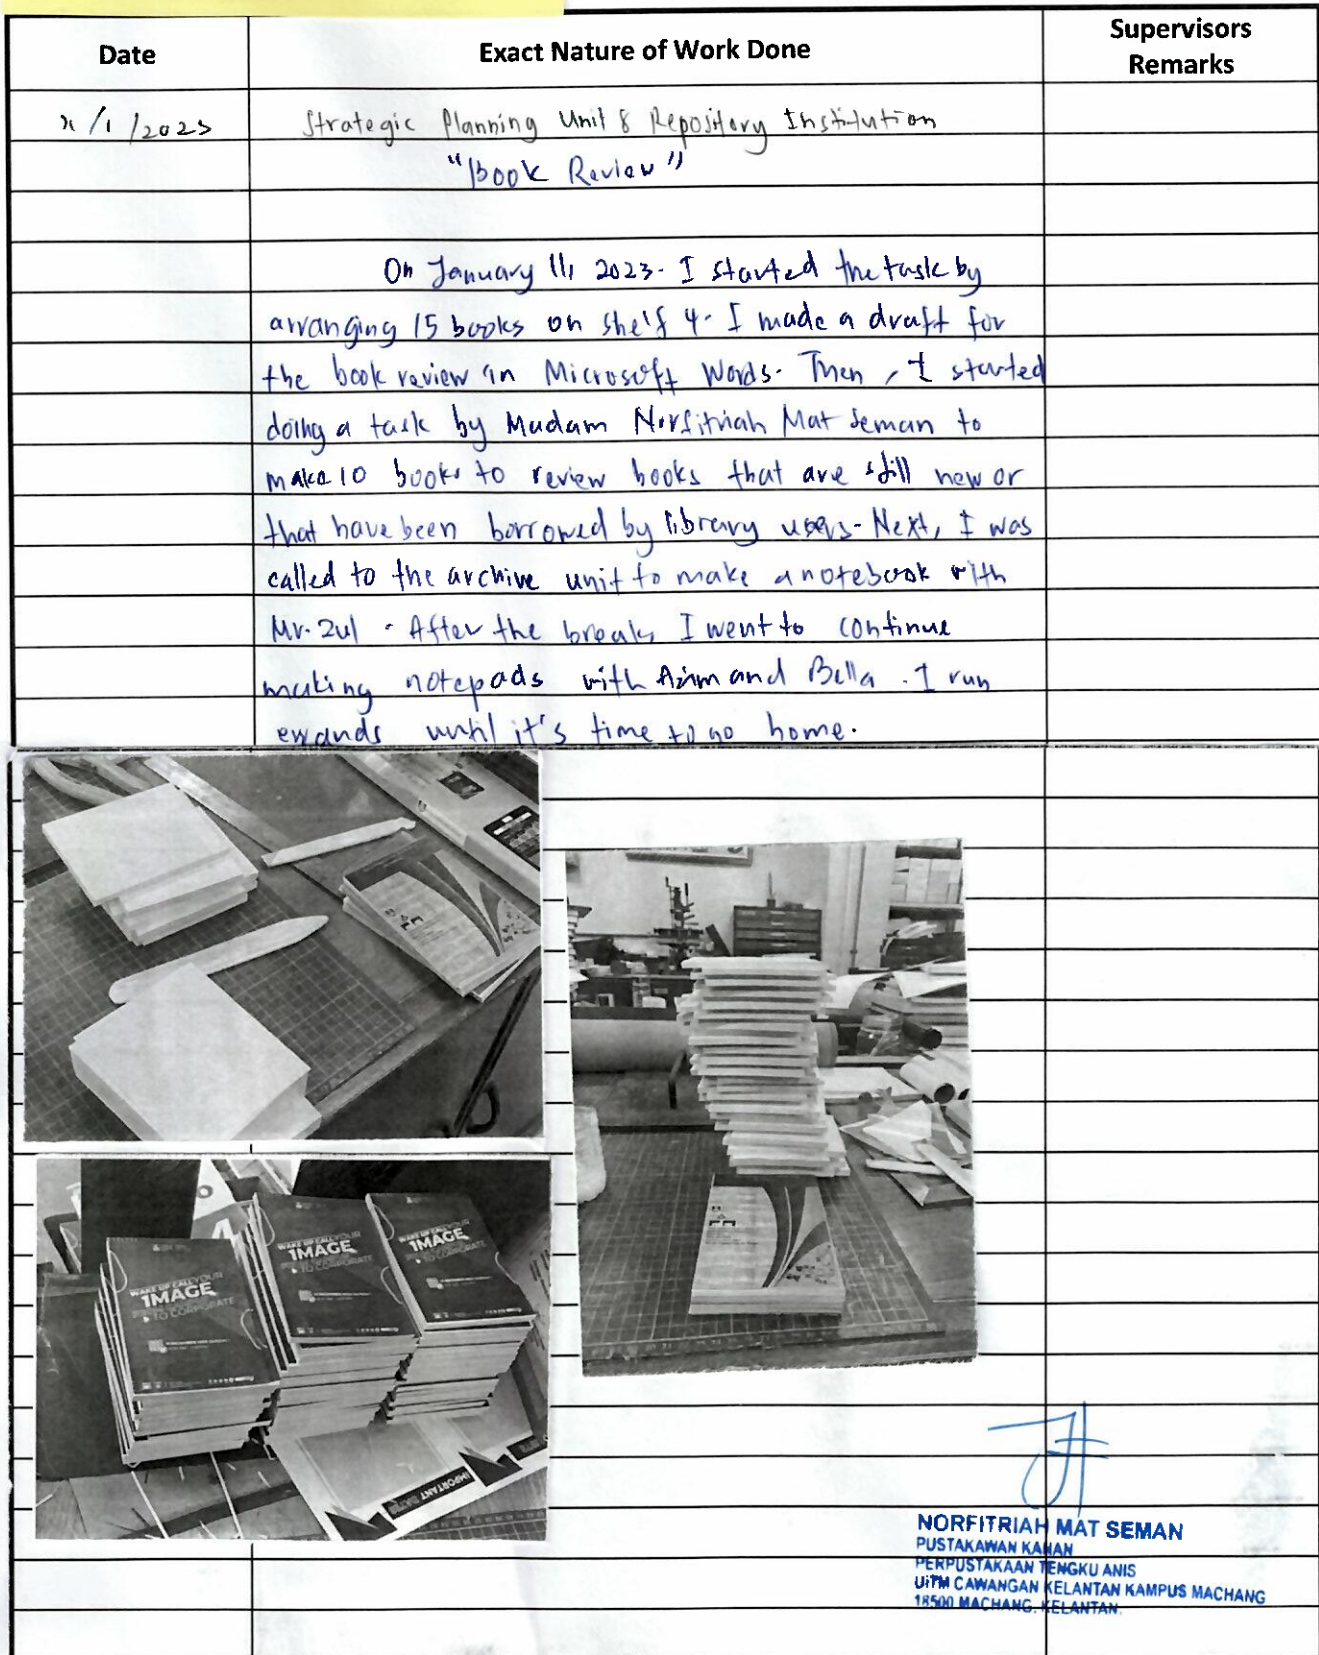 Date
Exact Nature of Work Done
Supervisors
Remarks
11/1/2023
Strategic Planning Unit & Repository Institution
"Book Review"
On January 11, 2023. I started the task by
arranging 15 books on shelf 4. I made a draft for
the book review in Microsoft Words. Then, I started
doing a task by Madam Norfitriah Mat Seman to
make 10 books to review books that are still new or
that have been borrowed by library users. Next, I was
called to the archive unit to make a notebook with
Mr. Zul. After the break, I went to continue
making notepads with Azim and Bella. I run
errands until it's time to go home.
WAKE UP CALL YOUR
1MAGE
TO CORPORATE
WAKE UP CALL YOUR
1MAGE
TO CORPORATE
WAKE UP CALL YOUR
1MAGE
TO CORPORATE
IMPORTANT DATES
NORFITRIAH MAT SEMAN
PUSTAKAWAN KANAN
PERPUSTAKAAN TENGKU ANIS
UiTM CAWANGAN KELANTAN KAMPUS MACHANG
18500 MACHANG, KELANTAN.